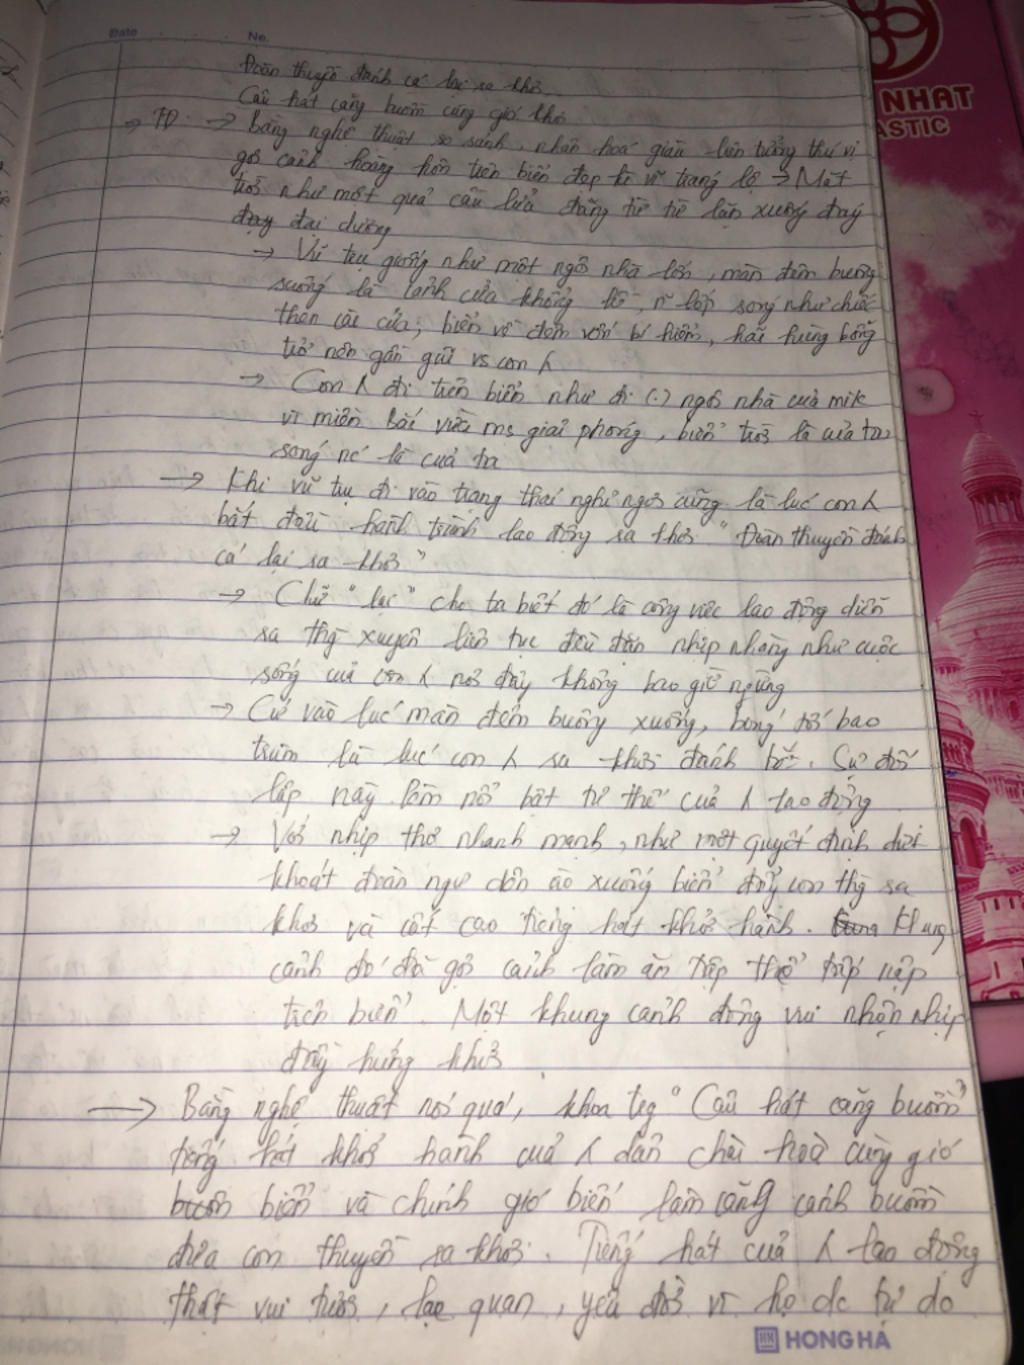 Date No.
Đoàn thuyền đánh cá lại sa khơi
Câu hát căng buồm cùng gió khơi
=> PD. -> Bằng nghệ thuật so sánh, nhân hoá giàu liên tưởng thú vị
gợi cảnh hoàng hôn trên biển đẹp kì vĩ tráng lệ -> Mặt
trời như một quả cầu lửa đang từ từ lặn xuống đáy
đáy đại dương
-> Vũ trụ giống như một ngôi nhà lớn, màn đêm buông
xuống là cánh cửa khổng lồ, n~ lớp sóng như chiếc
then cài cửa; biển về đêm vốn bí hiểm, hãi hùng bỗng
trở nên gần gũi vs con λ
-> Con λ đi trên biển như đi (.) ngôi nhà của mik
vì miền Bắc vừa ms giải phóng, biển trời là của ta
sóng nc là của ta
-> Khi vũ trụ đi vào trạng thái nghỉ ngơi cũng là lúc con λ
bắt đầu hành trình lao động sa khơi "Đoàn thuyền đánh
cá lại sa khơi"
-> Chữ "lại" cho ta biết đó là công việc lao động diễn
sa thg xuyên liên tục đều đặn nhịp nhàng như cuộc
sống của con λ nơi đây không bao giờ ngừng
-> Cứ vào lúc màn đêm buông xuống, bóng tối bao
trùm là lúc con λ sa khơi đánh bắt. Sự đối
lập này làm nổi bật tư thế của λ lao động
-> Với nhịp thơ nhanh mạnh, như một quyết định dứt
khoát đoàn ngư dân ào xuống biển đẩy con thg sa
khơi và cất cao tiếng hát khởi hành. Khung
cảnh đó đã gợi cảnh làm ăn tập thể tấp nập
trên biển. Một khung cảnh đông vui nhộn nhịp
đầy hứng khởi
-> Bằng nghệ thuật nói quá, khoa trg "Câu hát căng buồm"
tiếng hát khởi hành của λ dân chài hoà cùng gió
buồn biển và chính gió biển làm căng cánh buồm
đưa con thuyền sa khơi. Tiếng hát của λ lao động
thật vui tươi, lạc quan, yêu đời vì họ dc tự do
HONG HA
NHAT
ASTIC